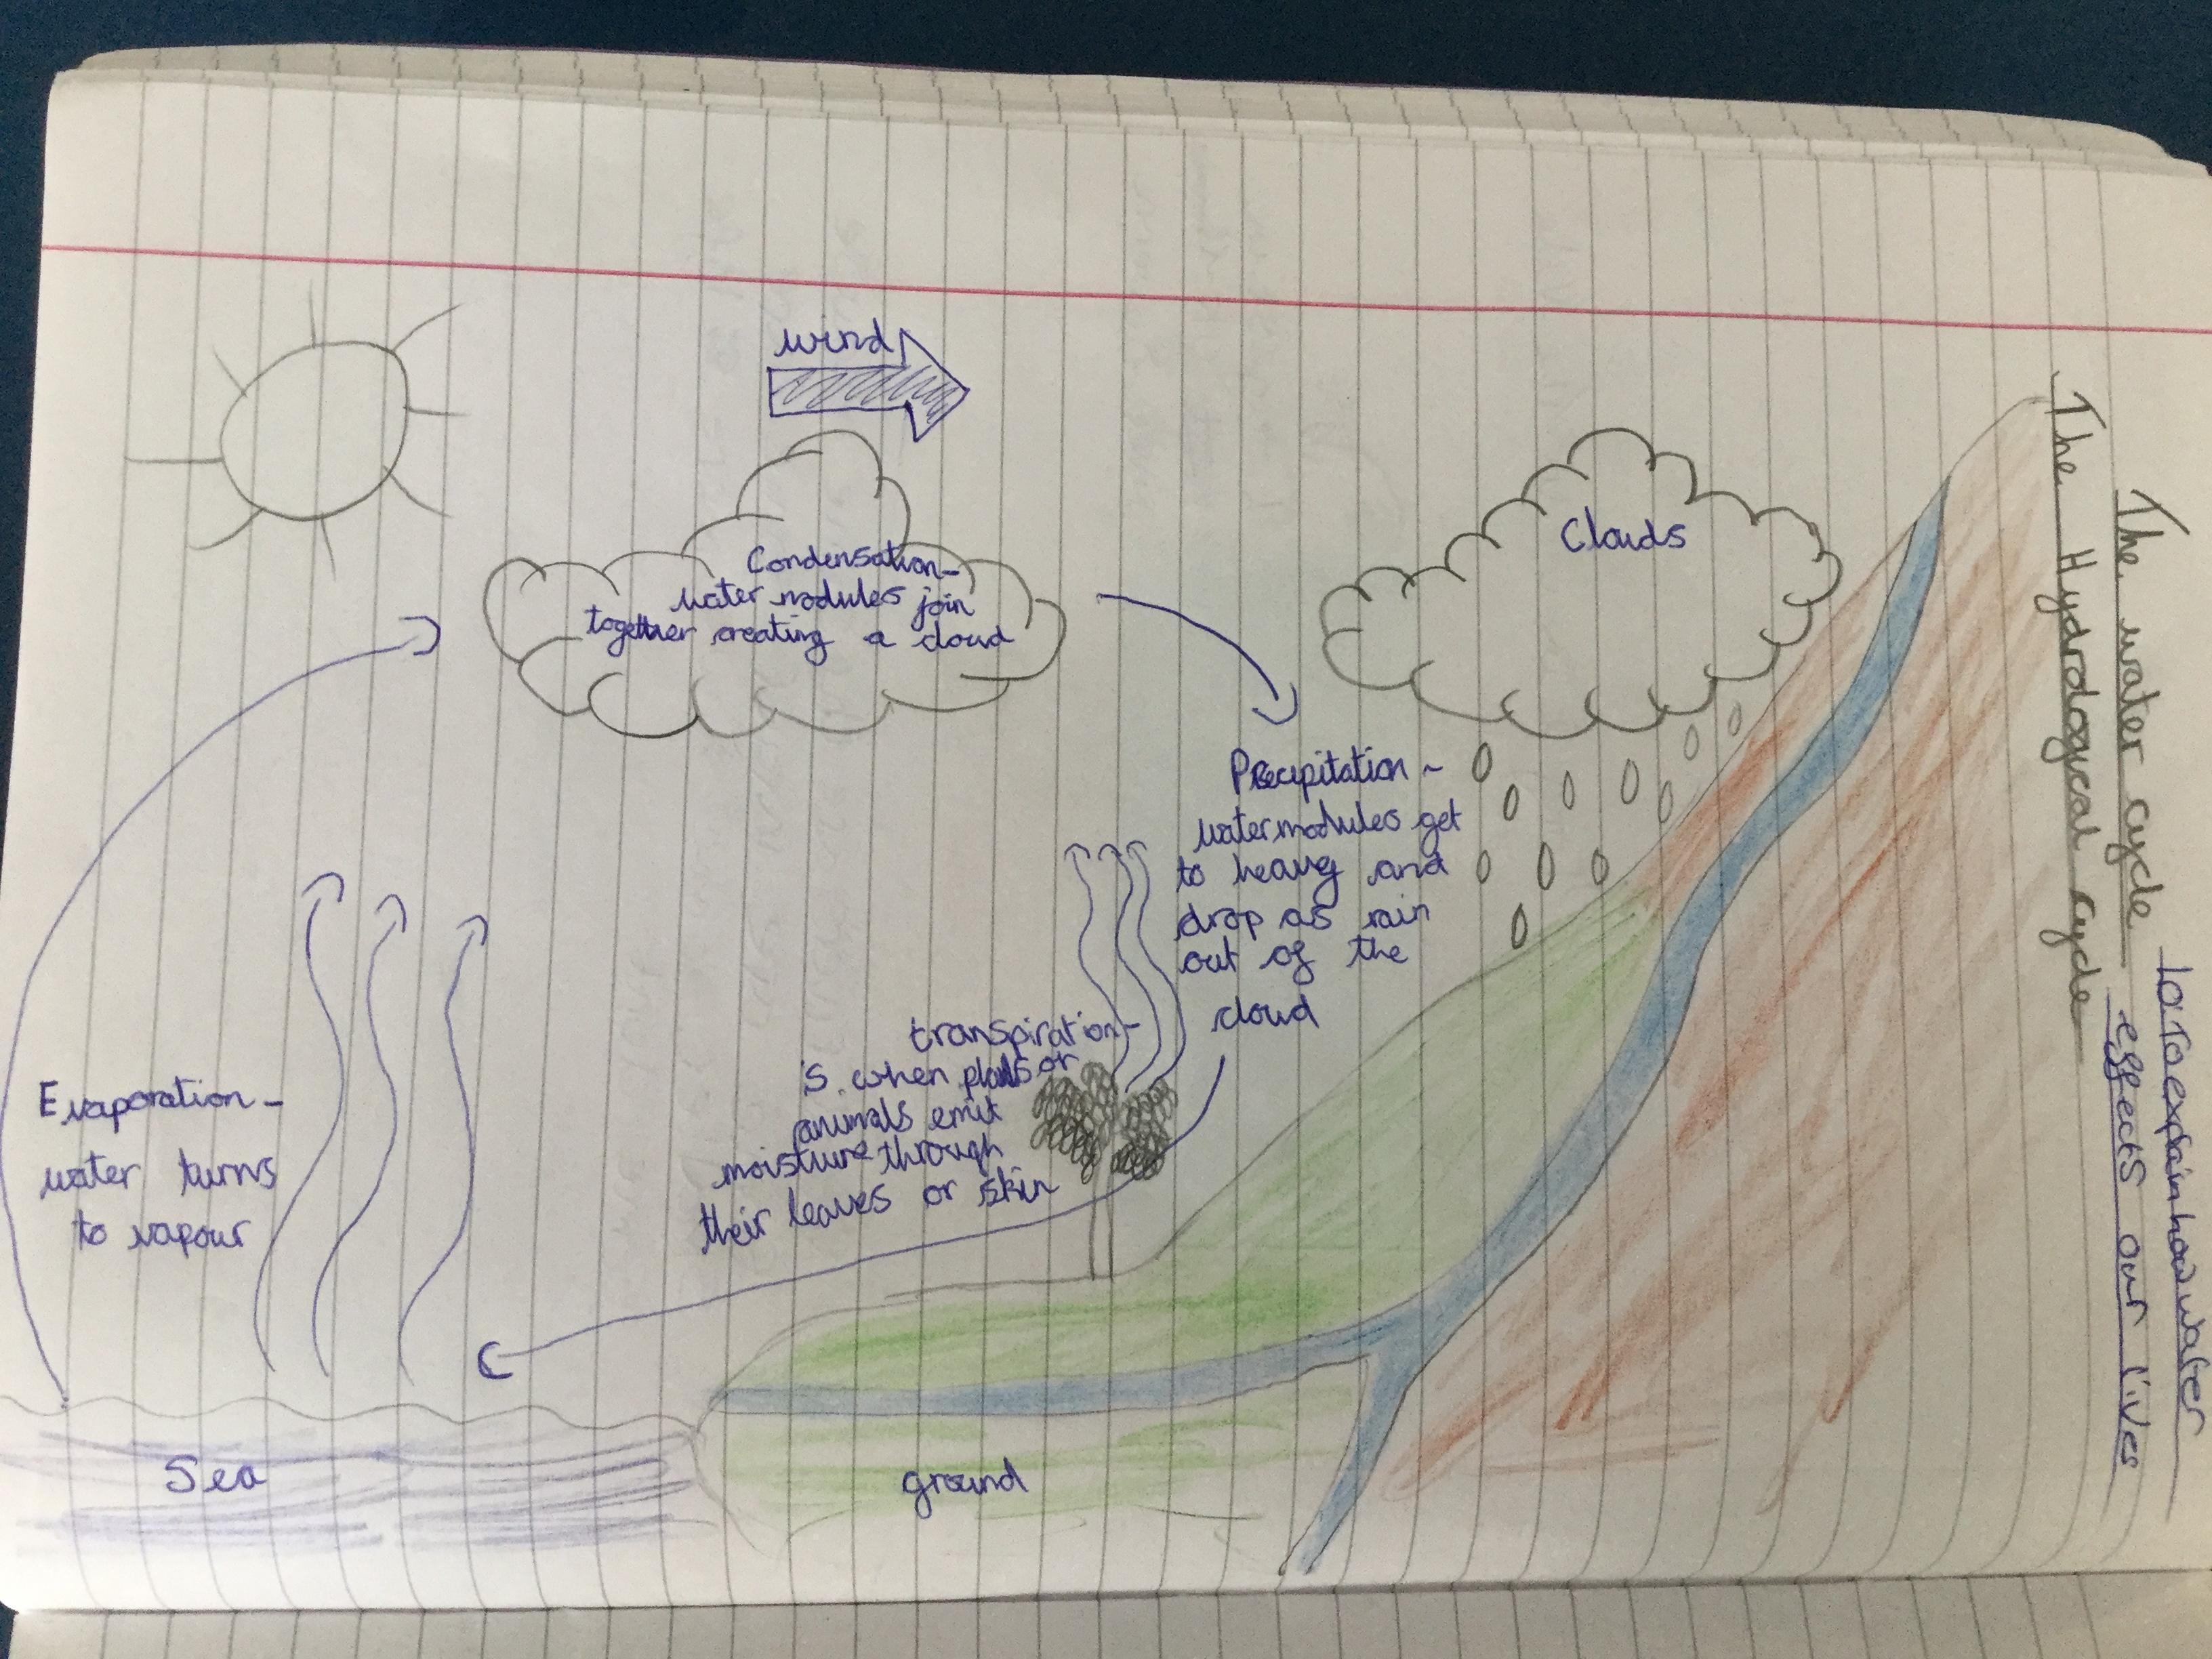 The water cycle
LO To explain how water
effects our lives
The Hydrological cycle
wind
Condensation-
water modules join
together creating a cloud
Clouds
Precipitation -
water modules get
to heavy and
drop as rain
out of the
cloud
transpiration-
is when plants or
animals emit
moisture through
their leaves or skin
Evaporation -
water turns
to vapour
Sea
ground